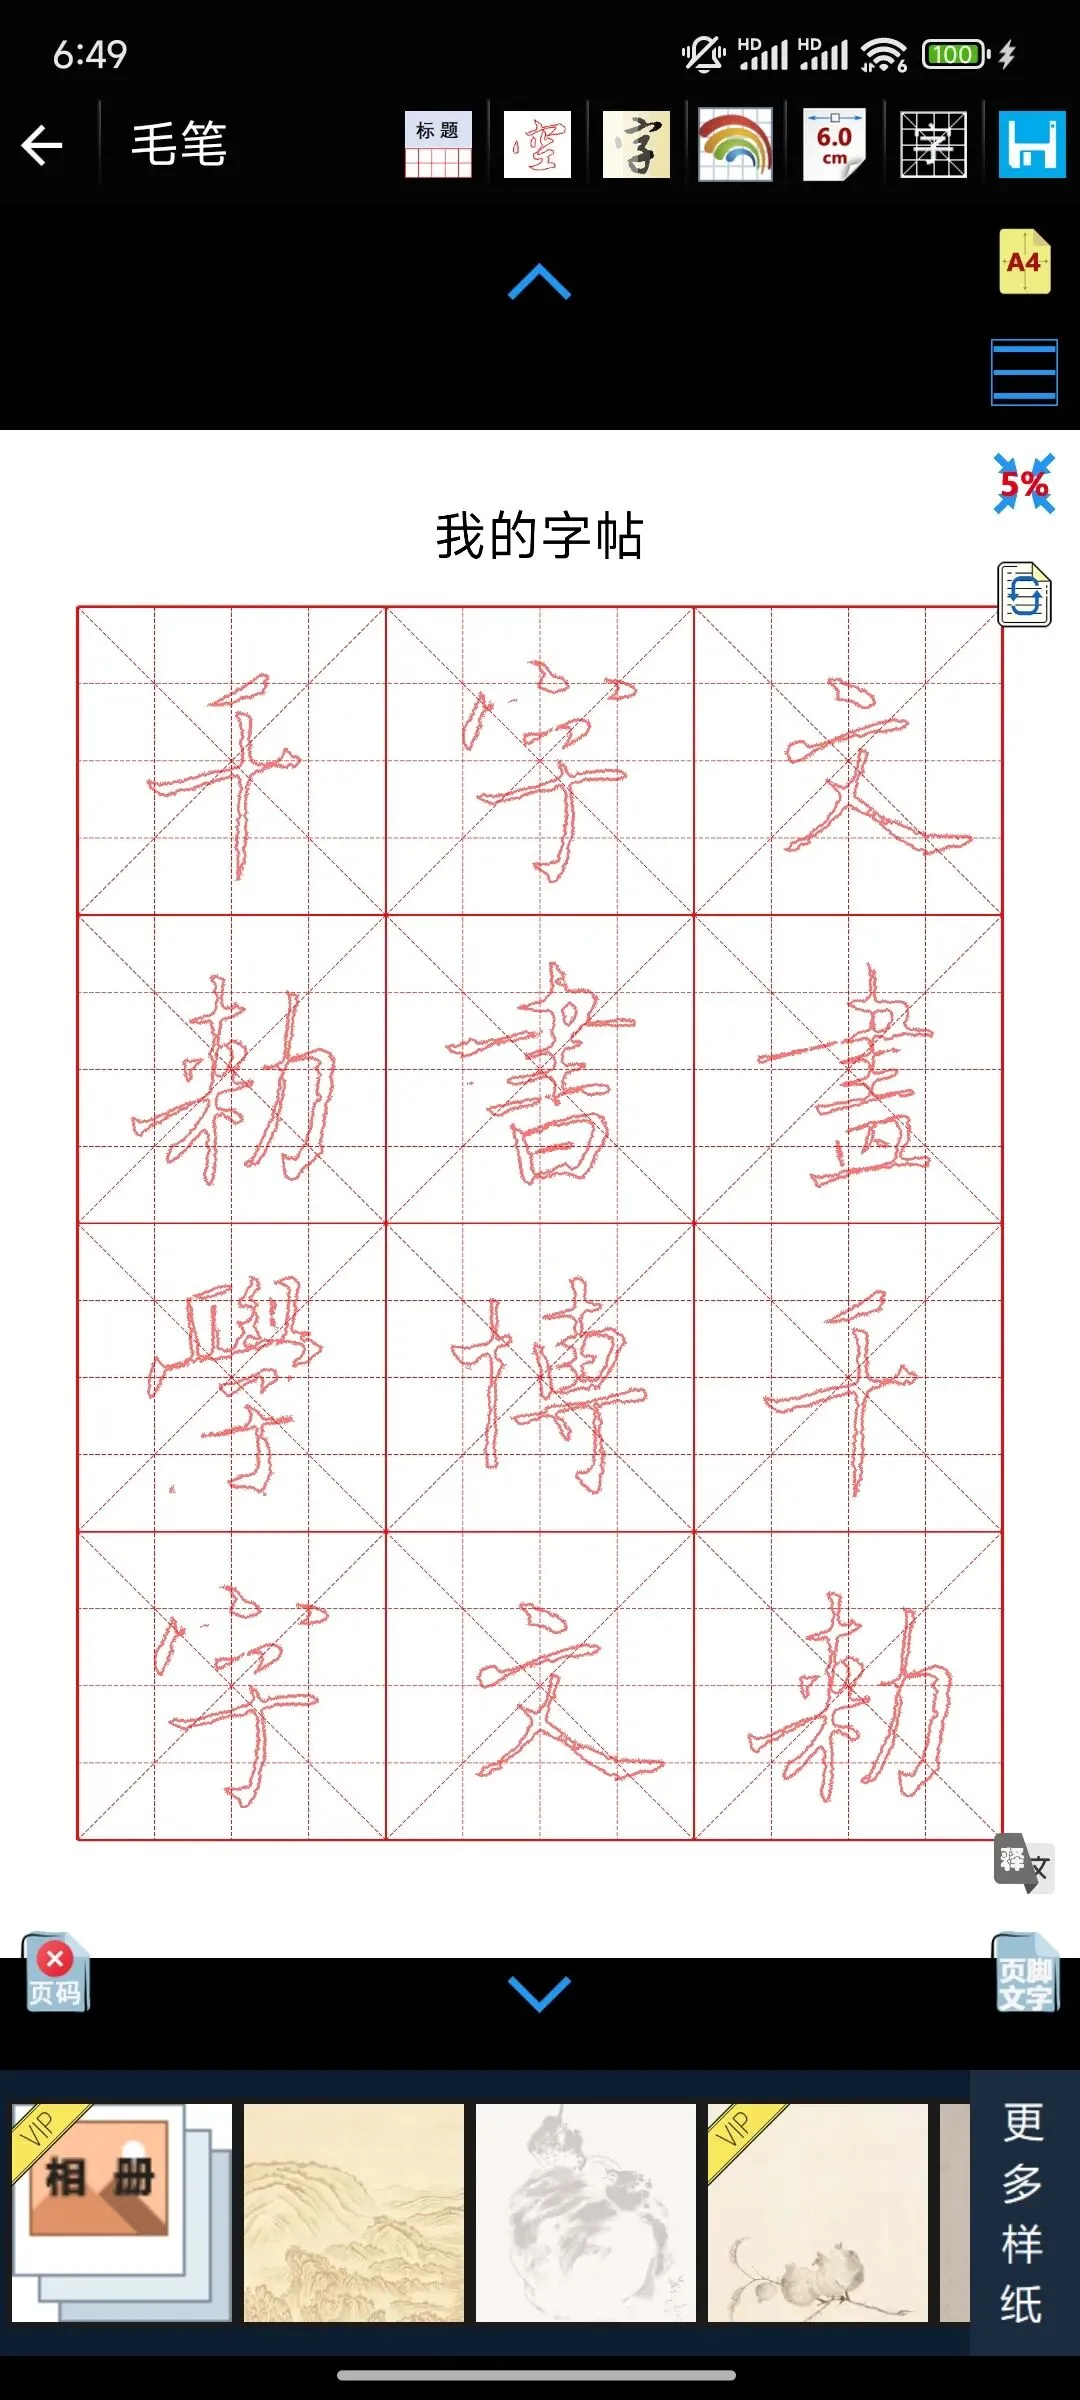 6:49
HD HD 6 100
毛笔 标题 空 字 6.0 cm 字
A4
5%
我的字帖
千字文
勅書畫
學博千
字文勅
释 文
页码 页脚文字
VIP 相册 VIP 更多样纸